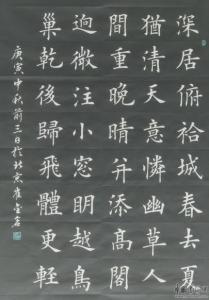 深居俯袷城春去夏
猶清天意憐幽草人
間重晚晴并添高閣
逈微注小窓明越鳥
巢乾後歸飛體更輕
庚寅中秋前三日於北京